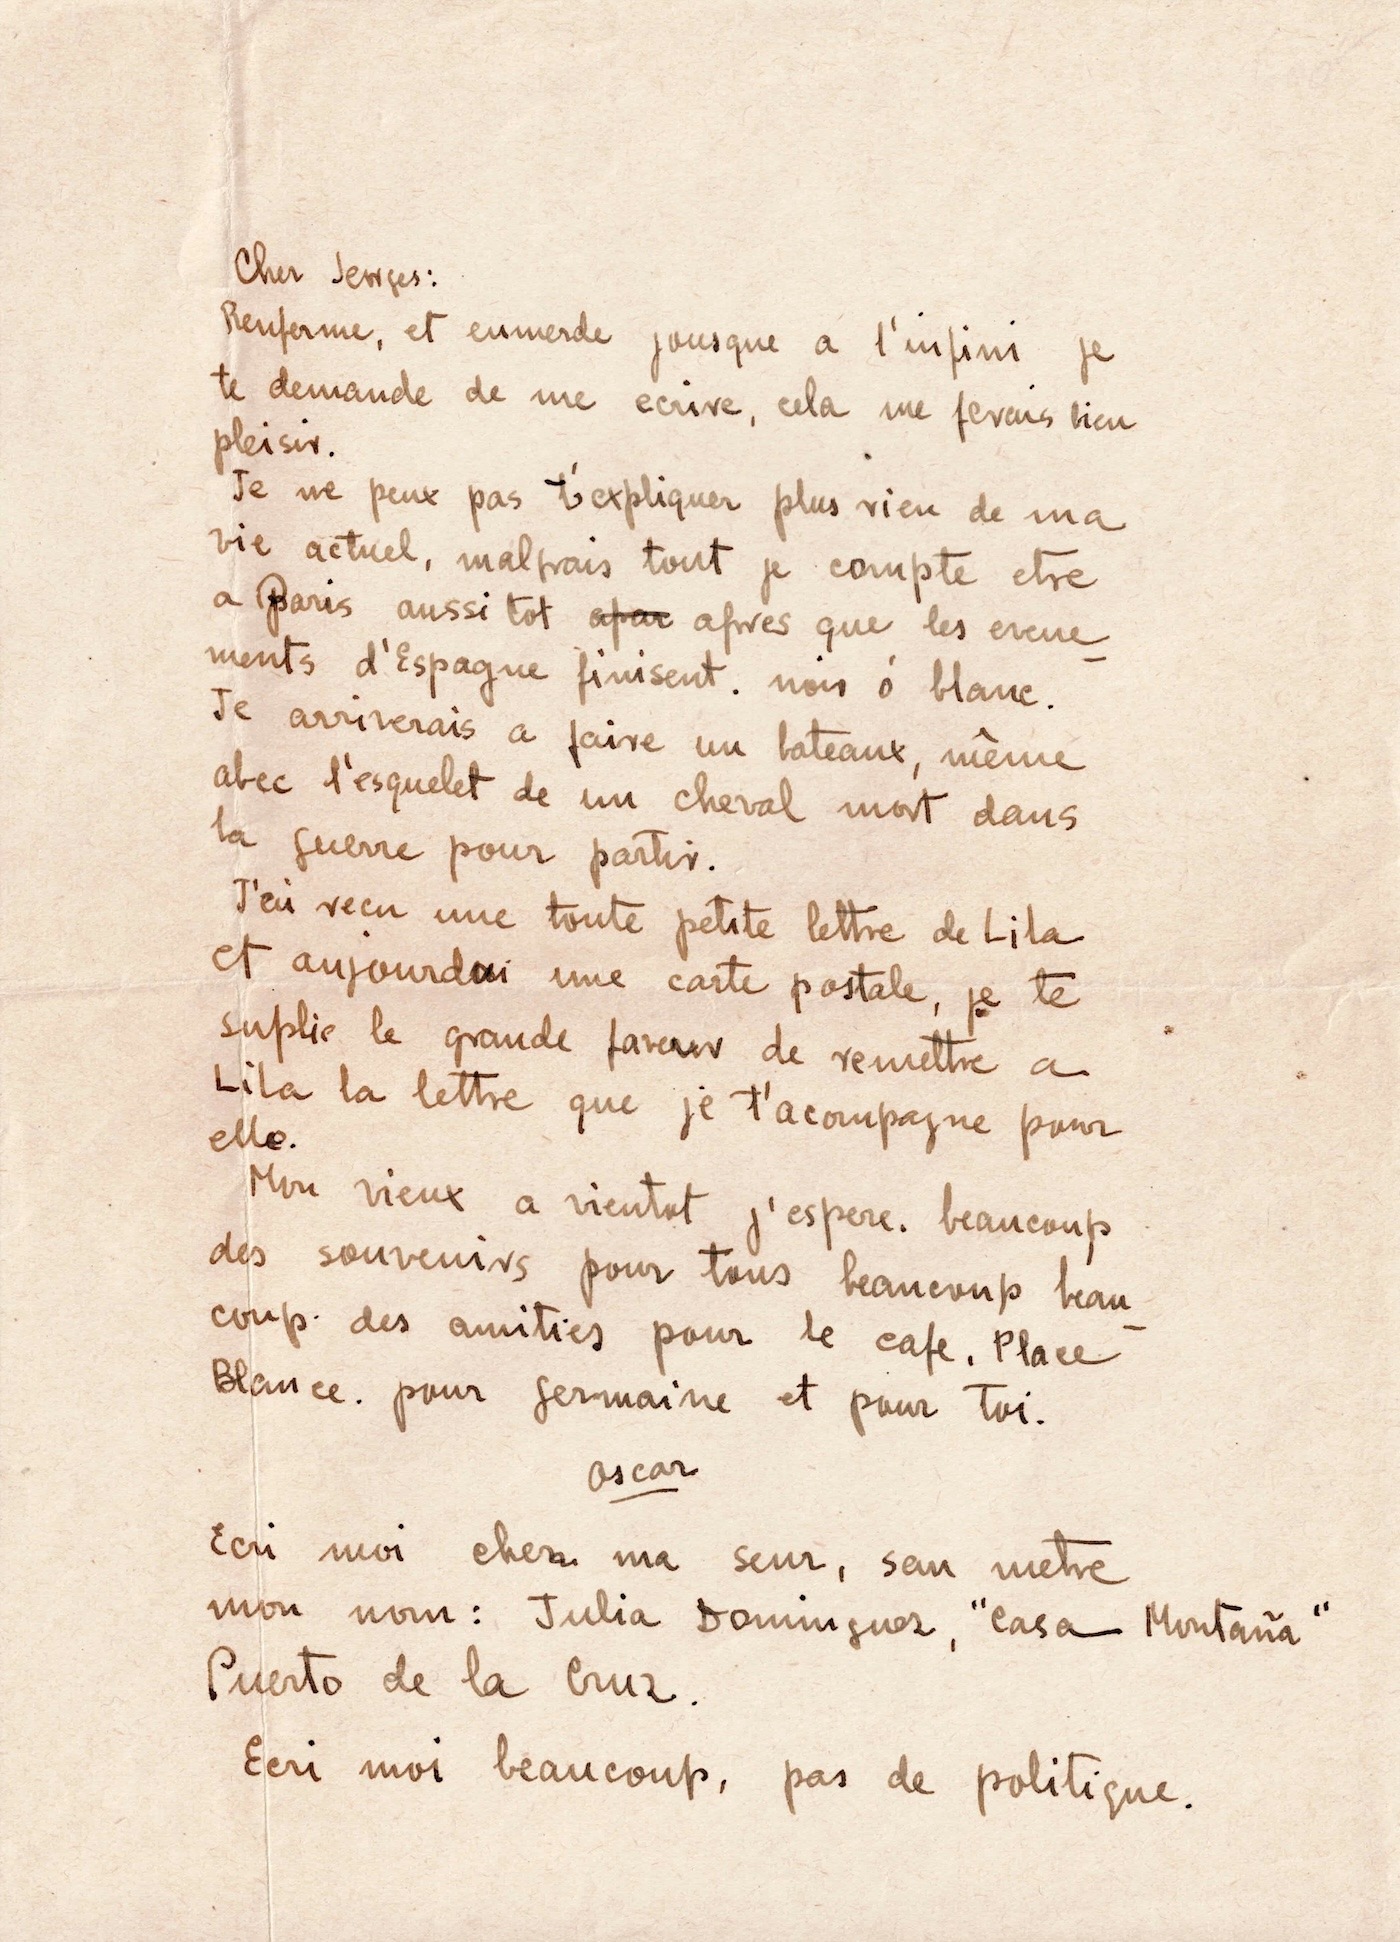 Cher Jeorges:
Renferme, et enmerde jousque a l'infini je
te demande de me ecrive, cela me ferais bien
pleisir.
Je ne peux pas t'expliquer plus rien de ma
vie actuel, malprais tout je compte etre
a Paris aussi tot apar apres que les evene-
ments d'Espagne finisent. noir ó blanc.
Je arriverais a faire un bateaux, même
abec l'esquelet de un cheval mort dans
la guerre pour partir.
J'ai recu une toute petite lettre de Lila
et aujourdui une carte postale, je te
suplie le grande faveur de remettre a
Lila la lettre que je t'acompagne pour
elle.
Mon vieux a vientot j'espere. beaucoup
des souvenirs pour tous beaucoup beau-
coup. des amities pour le cafe. Place
Blance. pour germaine et pour toi.
Oscar
Ecri moi cher ma seur, san metre
mon nom: Julia Dominguez, "Casa Montaña"
Puerto de la Cruz.
Ecri moi beaucoup, pas de politique.